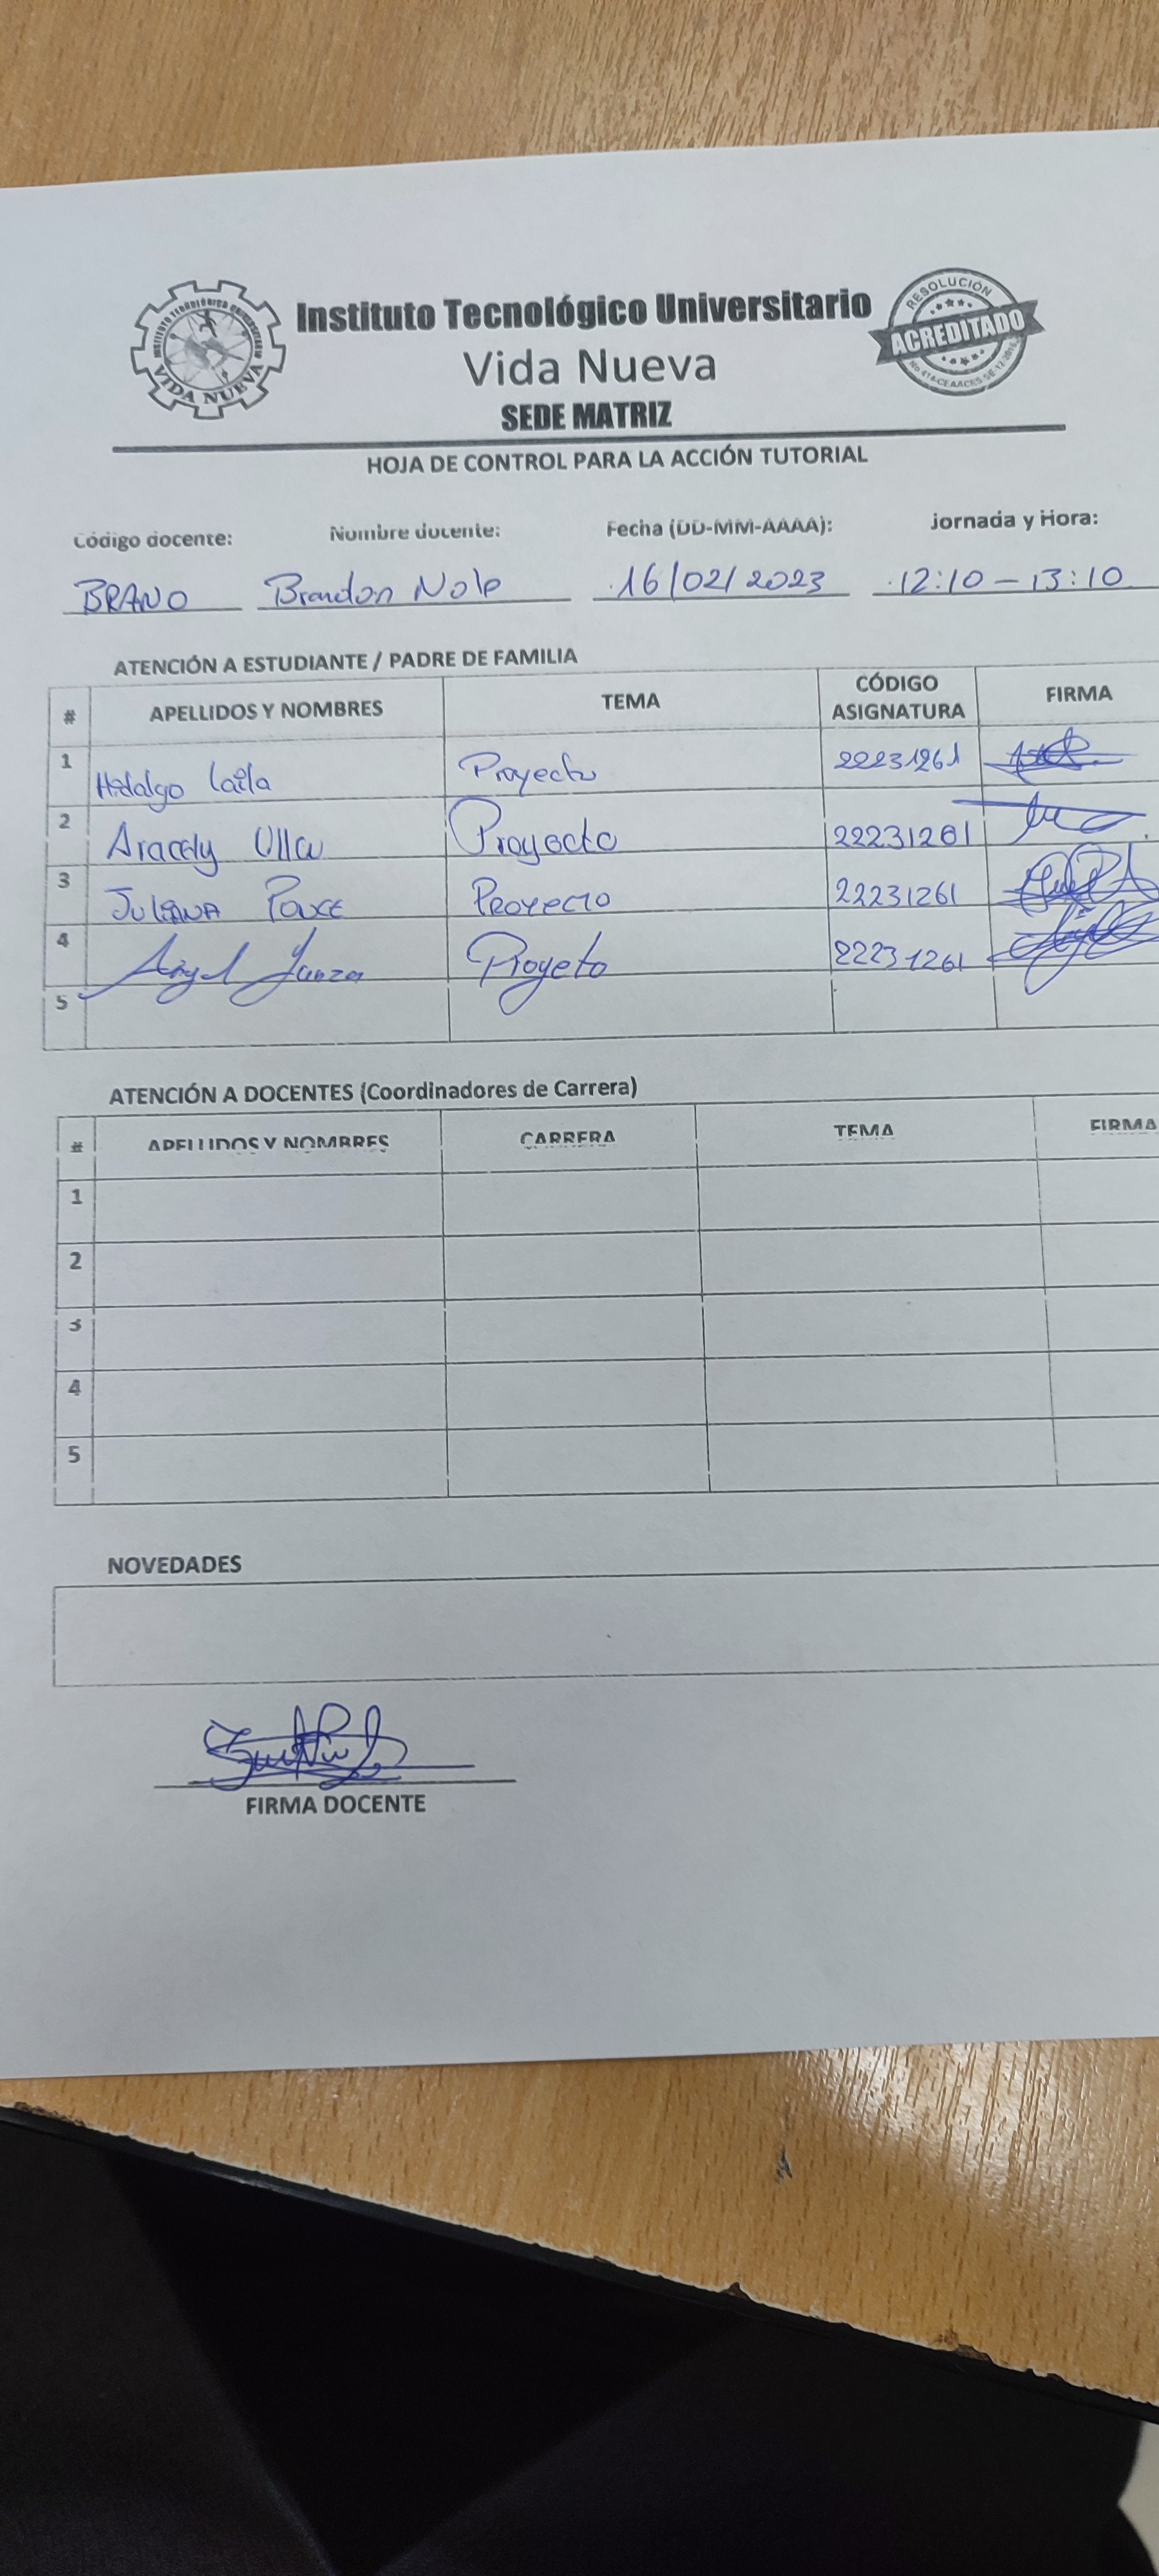 INSTITUTO TECNOLÓGICO UNIVERSITARIO
VIDA NUEVA
Instituto Tecnológico Universitario
Vida Nueva
SEDE MATRIZ
RESOLUCIÓN
ACREDITADO
HOJA DE CONTROL PARA LA ACCIÓN TUTORIAL
Código docente: Nombre docente: Fecha (DD-MM-AAAA): Jornada y Hora:
BRANO Brandon Nole 16/02/2023 12:10 - 13:10
ATENCIÓN A ESTUDIANTE / PADRE DE FAMILIA
# APELLIDOS Y NOMBRES TEMA CÓDIGO ASIGNATURA FIRMA
1 Hidalgo Proyecto 22231261
2 Aracely Proyecto 22231261
3 Juliana Ponce Proyecto 22231261
4 Angel Proyeto 22231261
5
ATENCIÓN A DOCENTES (Coordinadores de Carrera)
# APELLIDOS Y NOMBRES CARRERA TEMA FIRMA
1
2
3
4
5
NOVEDADES
FIRMA DOCENTE